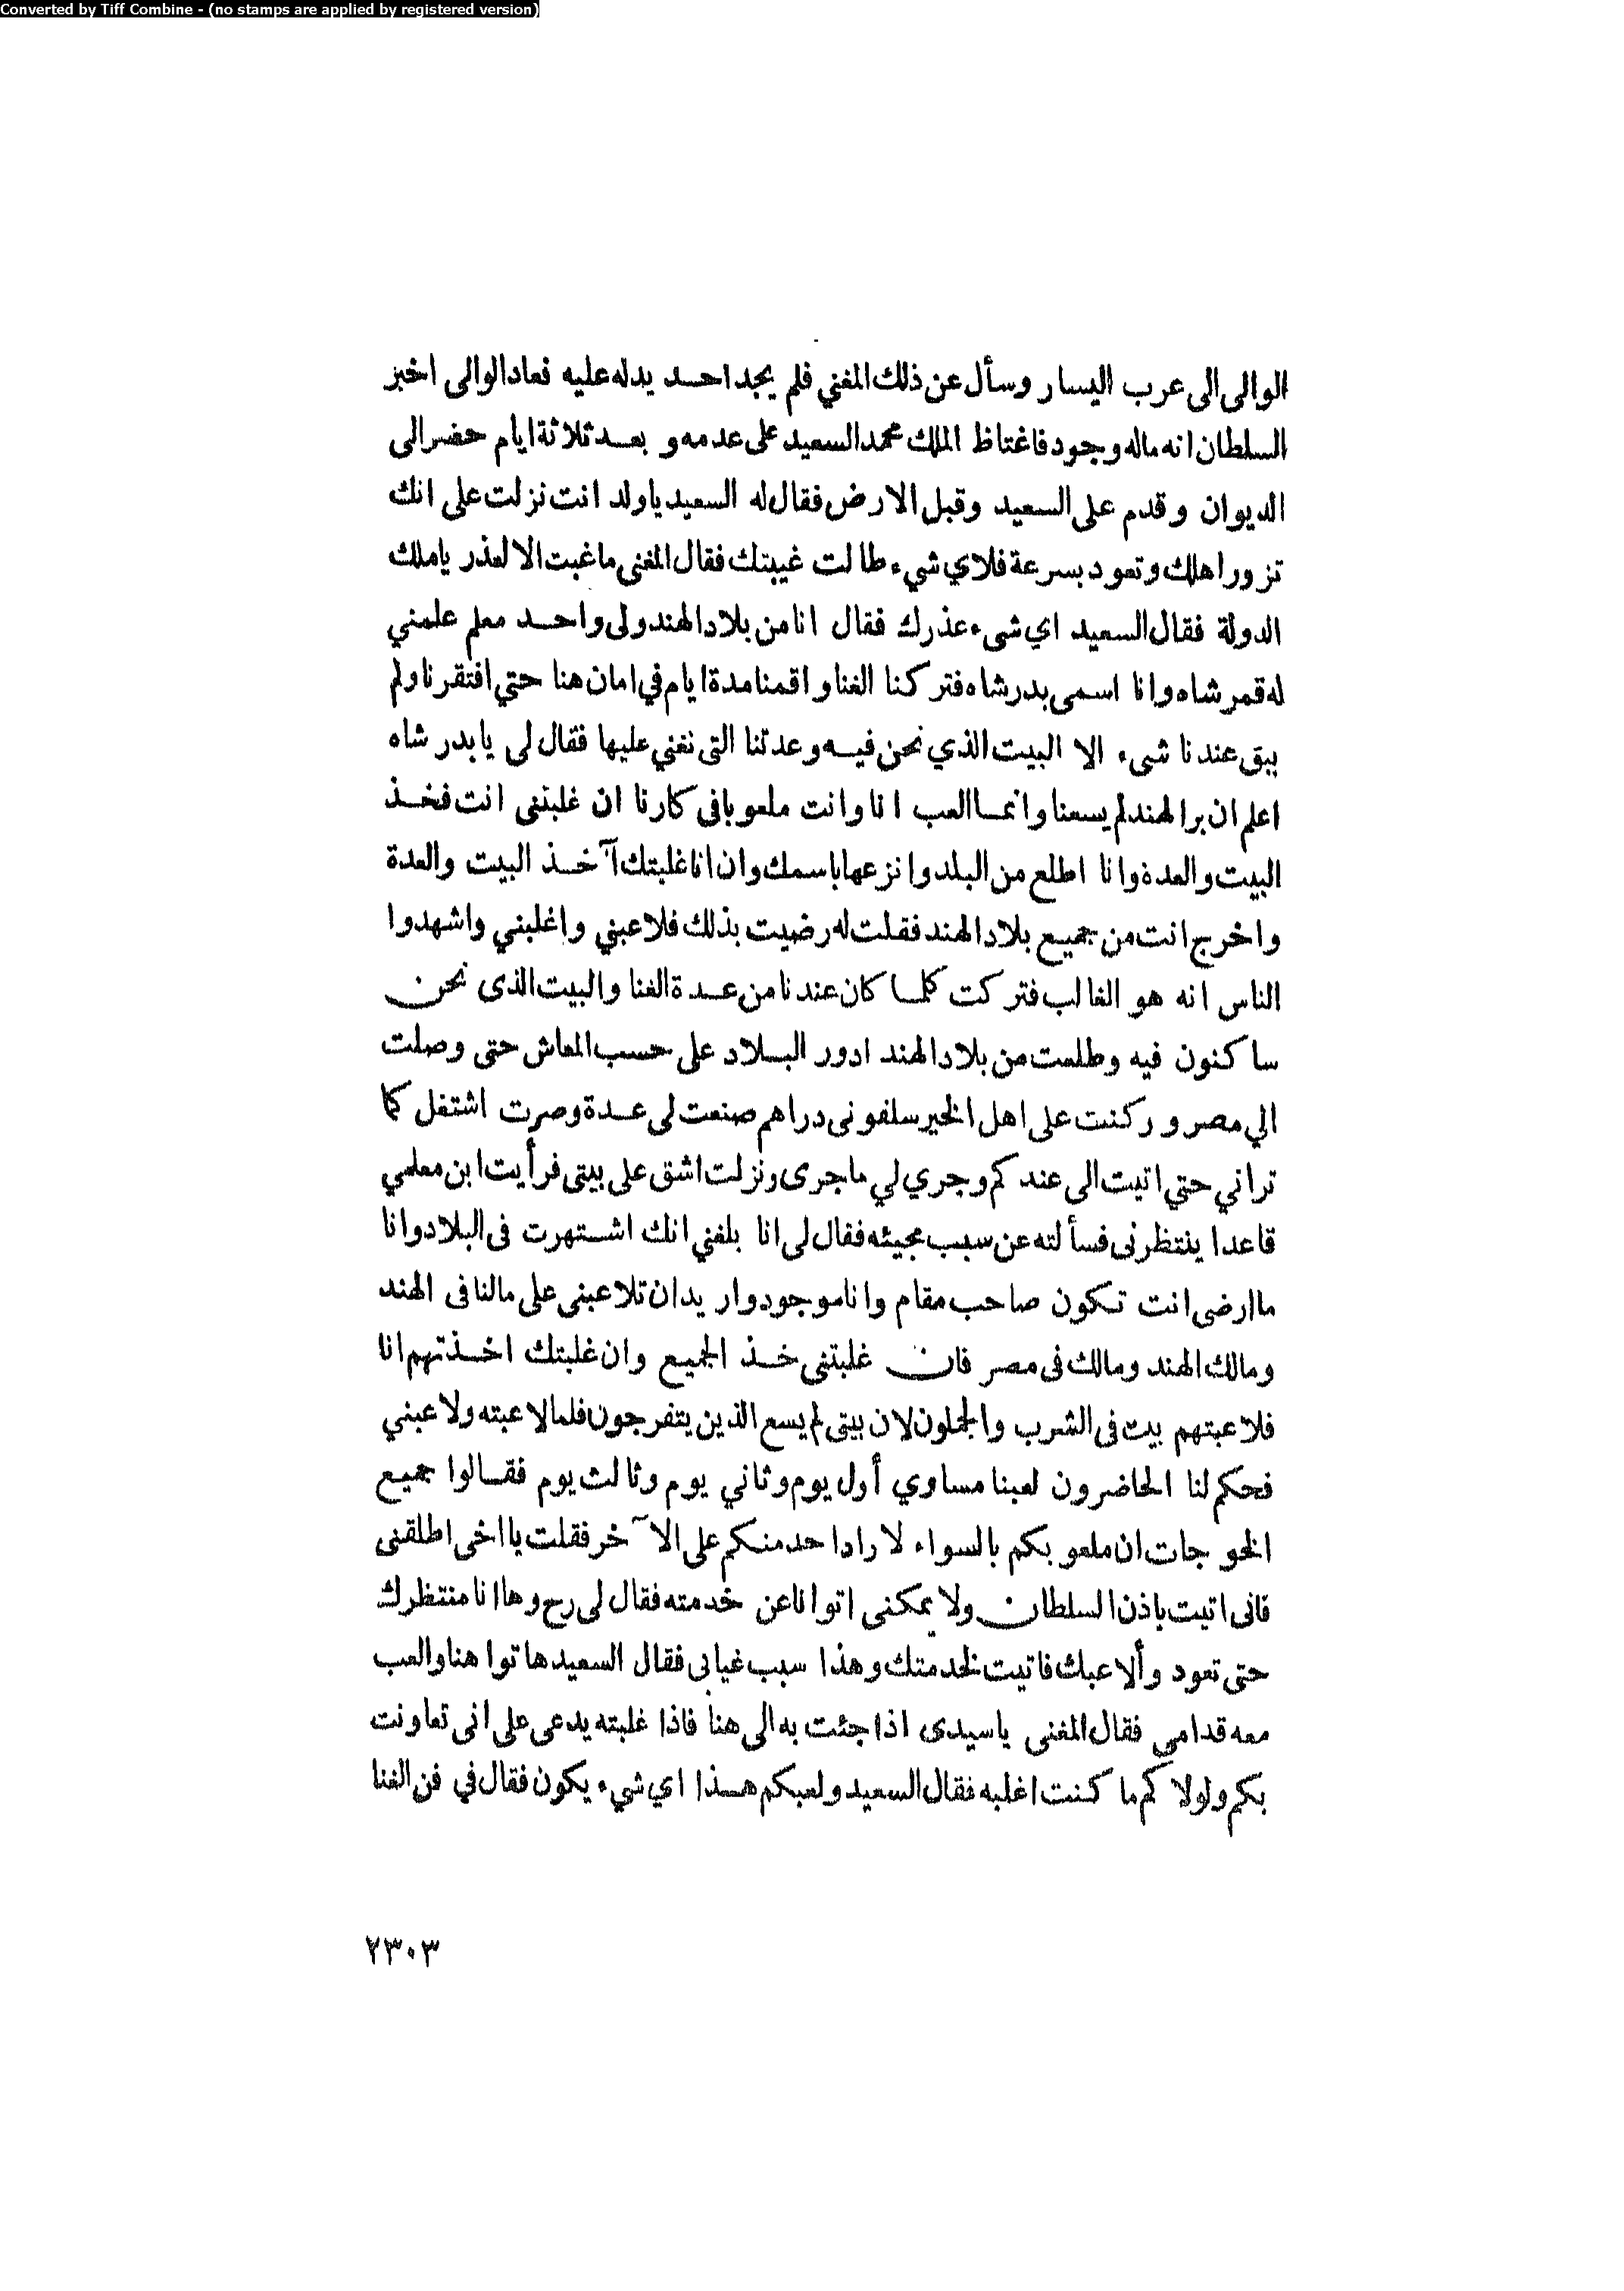 Converted by Tiff Combine - (no stamps are applied by registered version)
الوالى الى عرب اليسار وسأل عن ذلك المغني فلم يجد احد يدله عليه فعاد الوالى اخبر
السلطان انه ماله وجود فاغتاظ الملك محمد السعيد على عدمه و بعد ثلاثة ايام حضر الى
الديوان وقدم على السعيد وقبل الارض فقال له السعيد يا ولد انت نزلت على انك
تزور اهلك وتعود بسرعة فلاي شيء طالت غيبتك فقال المغنى ما غبت الا لعذر يا ملك
الدولة فقال السعيد اي شىء عذرك فقال انا من بلاد الهند ولى واحد معلم علمني
له قمر شاه وانا اسمى بدر شاه فتركنا الغنا واقمنا مدة ايام في امان هنا حتي افتقرنا ولم
يبق عندنا شىء الا البيت الذي نحن فيه وعدتنا التى نغني عليها فقال لى يا بدر شاه
اعلم ان بر الهند لم يسعنا وانما العب انا وانت ملعوبا فى كارنا ان غلبتنى انت فخذ
البيت والعدة وانا اطلع من البلد وانزعها باسمك وان انا غلبتك آخذ البيت والعدة
واخرج انت من جميع بلاد الهند فقلت له رضيت بذلك فلاعبني واغلبني واشهدوا
الناس انه هو الغالب فتركت كلما كان عندنا من عدة الغنا والبيت الذى نحن
ساكنون فيه وطلعت من بلاد الهند ادور البلاد على حسب المعاش حتى وصلت
الي مصر وركنت على اهل الخير سلفونى دراهم صنعت لى عدة وصرت اشتغل كما
تراني حتي اتيت الى عندكم وجري لي ما جرى ونزلت اشق على بيتى فرأيت ابن معلمي
قاعدا ينتظرنى فسألته عن سبب مجيئه فقال لى انا بلغني انك اشتهرت فى البلاد وانا
ما ارضى انت تكون صاحب مقام وانا موجود واريد ان تلاعبنى على مالنا فى الهند
ومالك الهند ومالك فى مصر فان غلبتنى خذ الجميع وان غلبتك اخذتهم انا
فلاعبتهم بيت فى الشرب والجملون لان بيتى لم يسع الذين يتفرجون فلما لاعبته ولاعبني
فحكم لنا الحاضرون لعبنا مساوي أول يوم وثاني يوم وثالث يوم فقالوا جميع
الخوجات ان ملعوبكم بالسواء لا زاد احد منكم على الآخر فقلت يا اخى اطلقنى
فانى اتيت باذن السلطان ولا يمكنى اتوانا عن خدمته فقال لى رح وها انا منتظرك
حتى تعود وألاعبك فاتيت لخدمتك وهذا سبب غيابى فقال السعيد هاتوا هنا والعب
معه قدامي فقال المغنى يا سيدى اذا جئت به الى هنا فاذا غلبته يدعى على انى تعاونت
بكم ولولاكم ما كنت اغلبه فقال السعيد ولعبكم هذا اي شيء يكون فقال في فن الغنا
٢٣٠٣